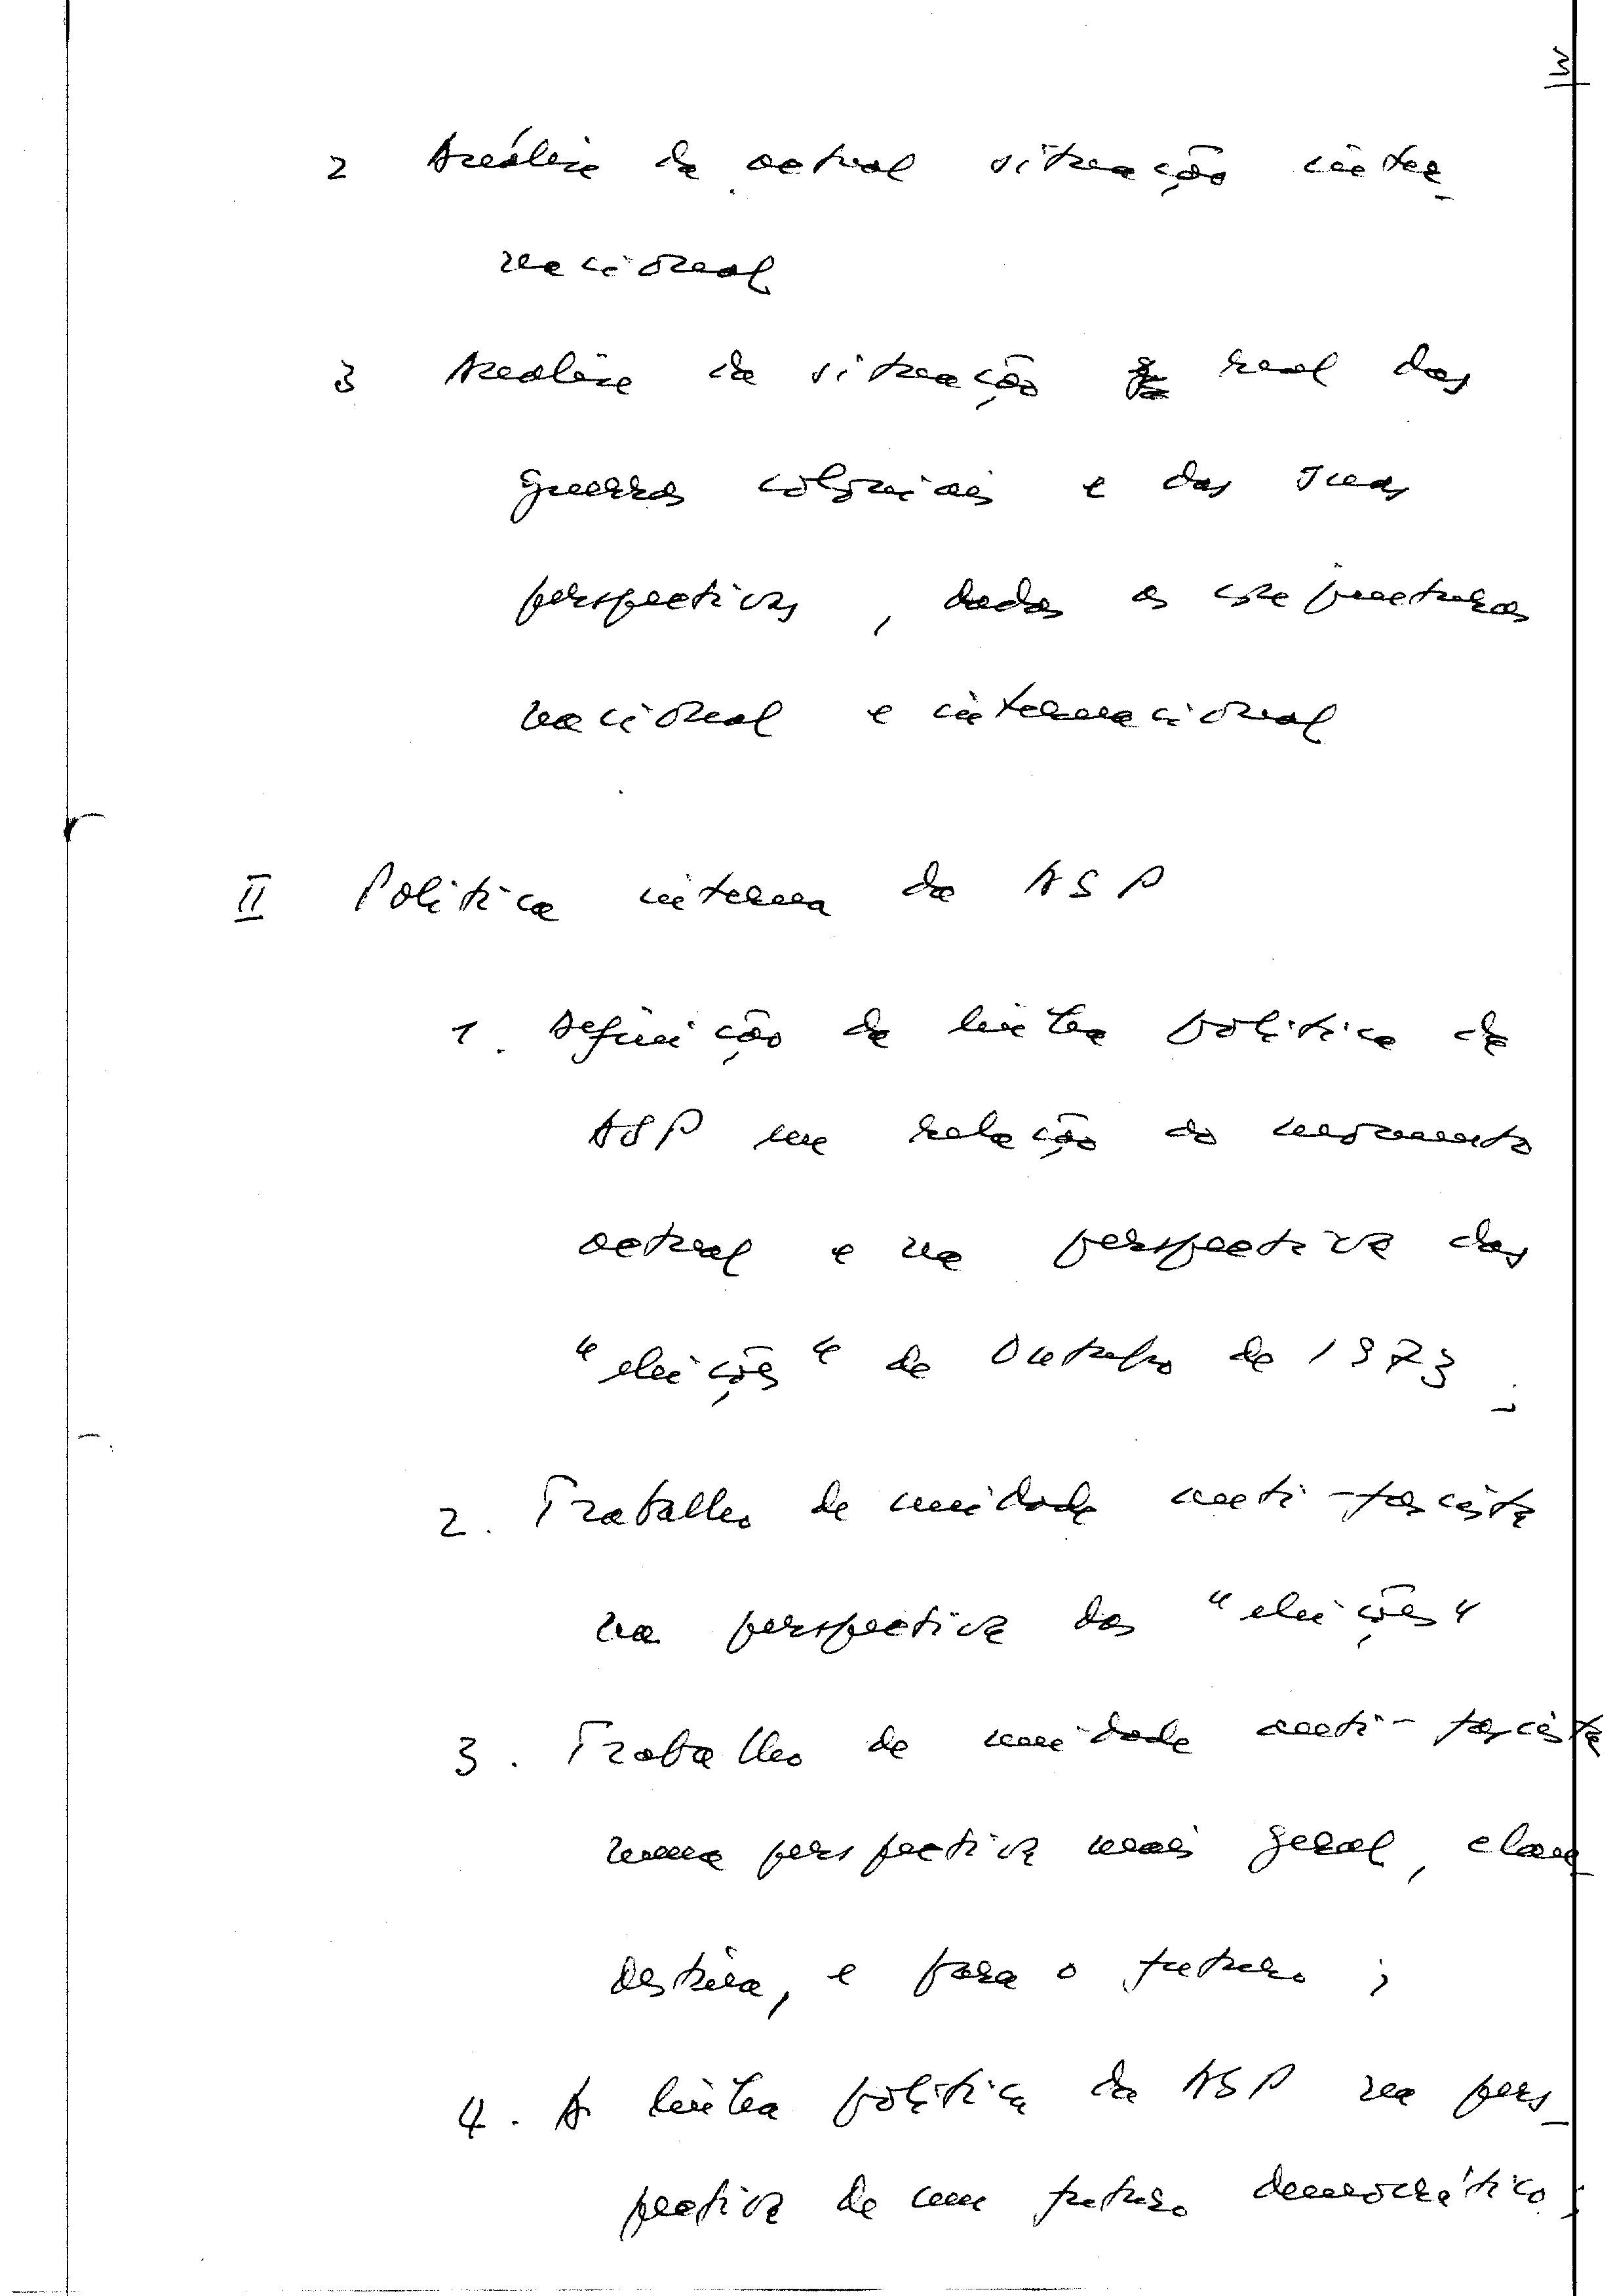 3
2 Análise da actual situação inter-
nacional
3 Análise da situação real das
guerras coloniais e das suas
perspectivas, dadas as conjunturas
nacional e internacional
II Politica interna da ASP
1. Definição da linha politica da
ASP em relação ao momento
actual e na perspectiva das
"eleições" de Outubro de 1973;
2. Trabalho de unidade anti-fascista
na perspectiva das "eleições"
3. Trabalho de unidade anti-fascista
numa perspectiva mais geral, clan-
destina, e para o futuro;
4. A linha politica da ASP na pers-
pectiva de um futuro democrático;